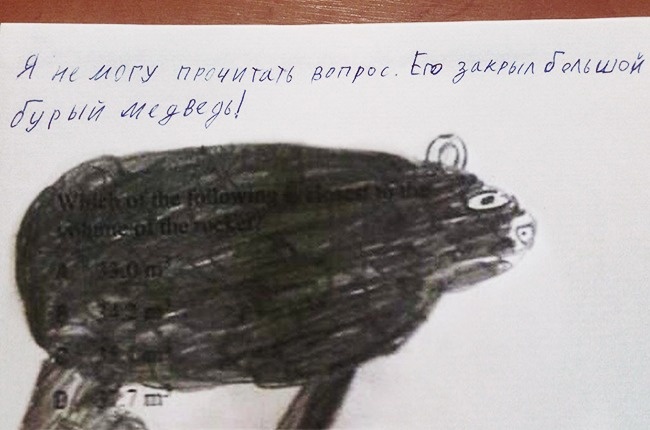 Я не могу прочитать вопрос. Его закрыл большой
бурый медведь!
Which of the following is closest to the
volume of the rocket?
A 33.0 m³
B 34.2 m³
C m³
D 37.7 m³